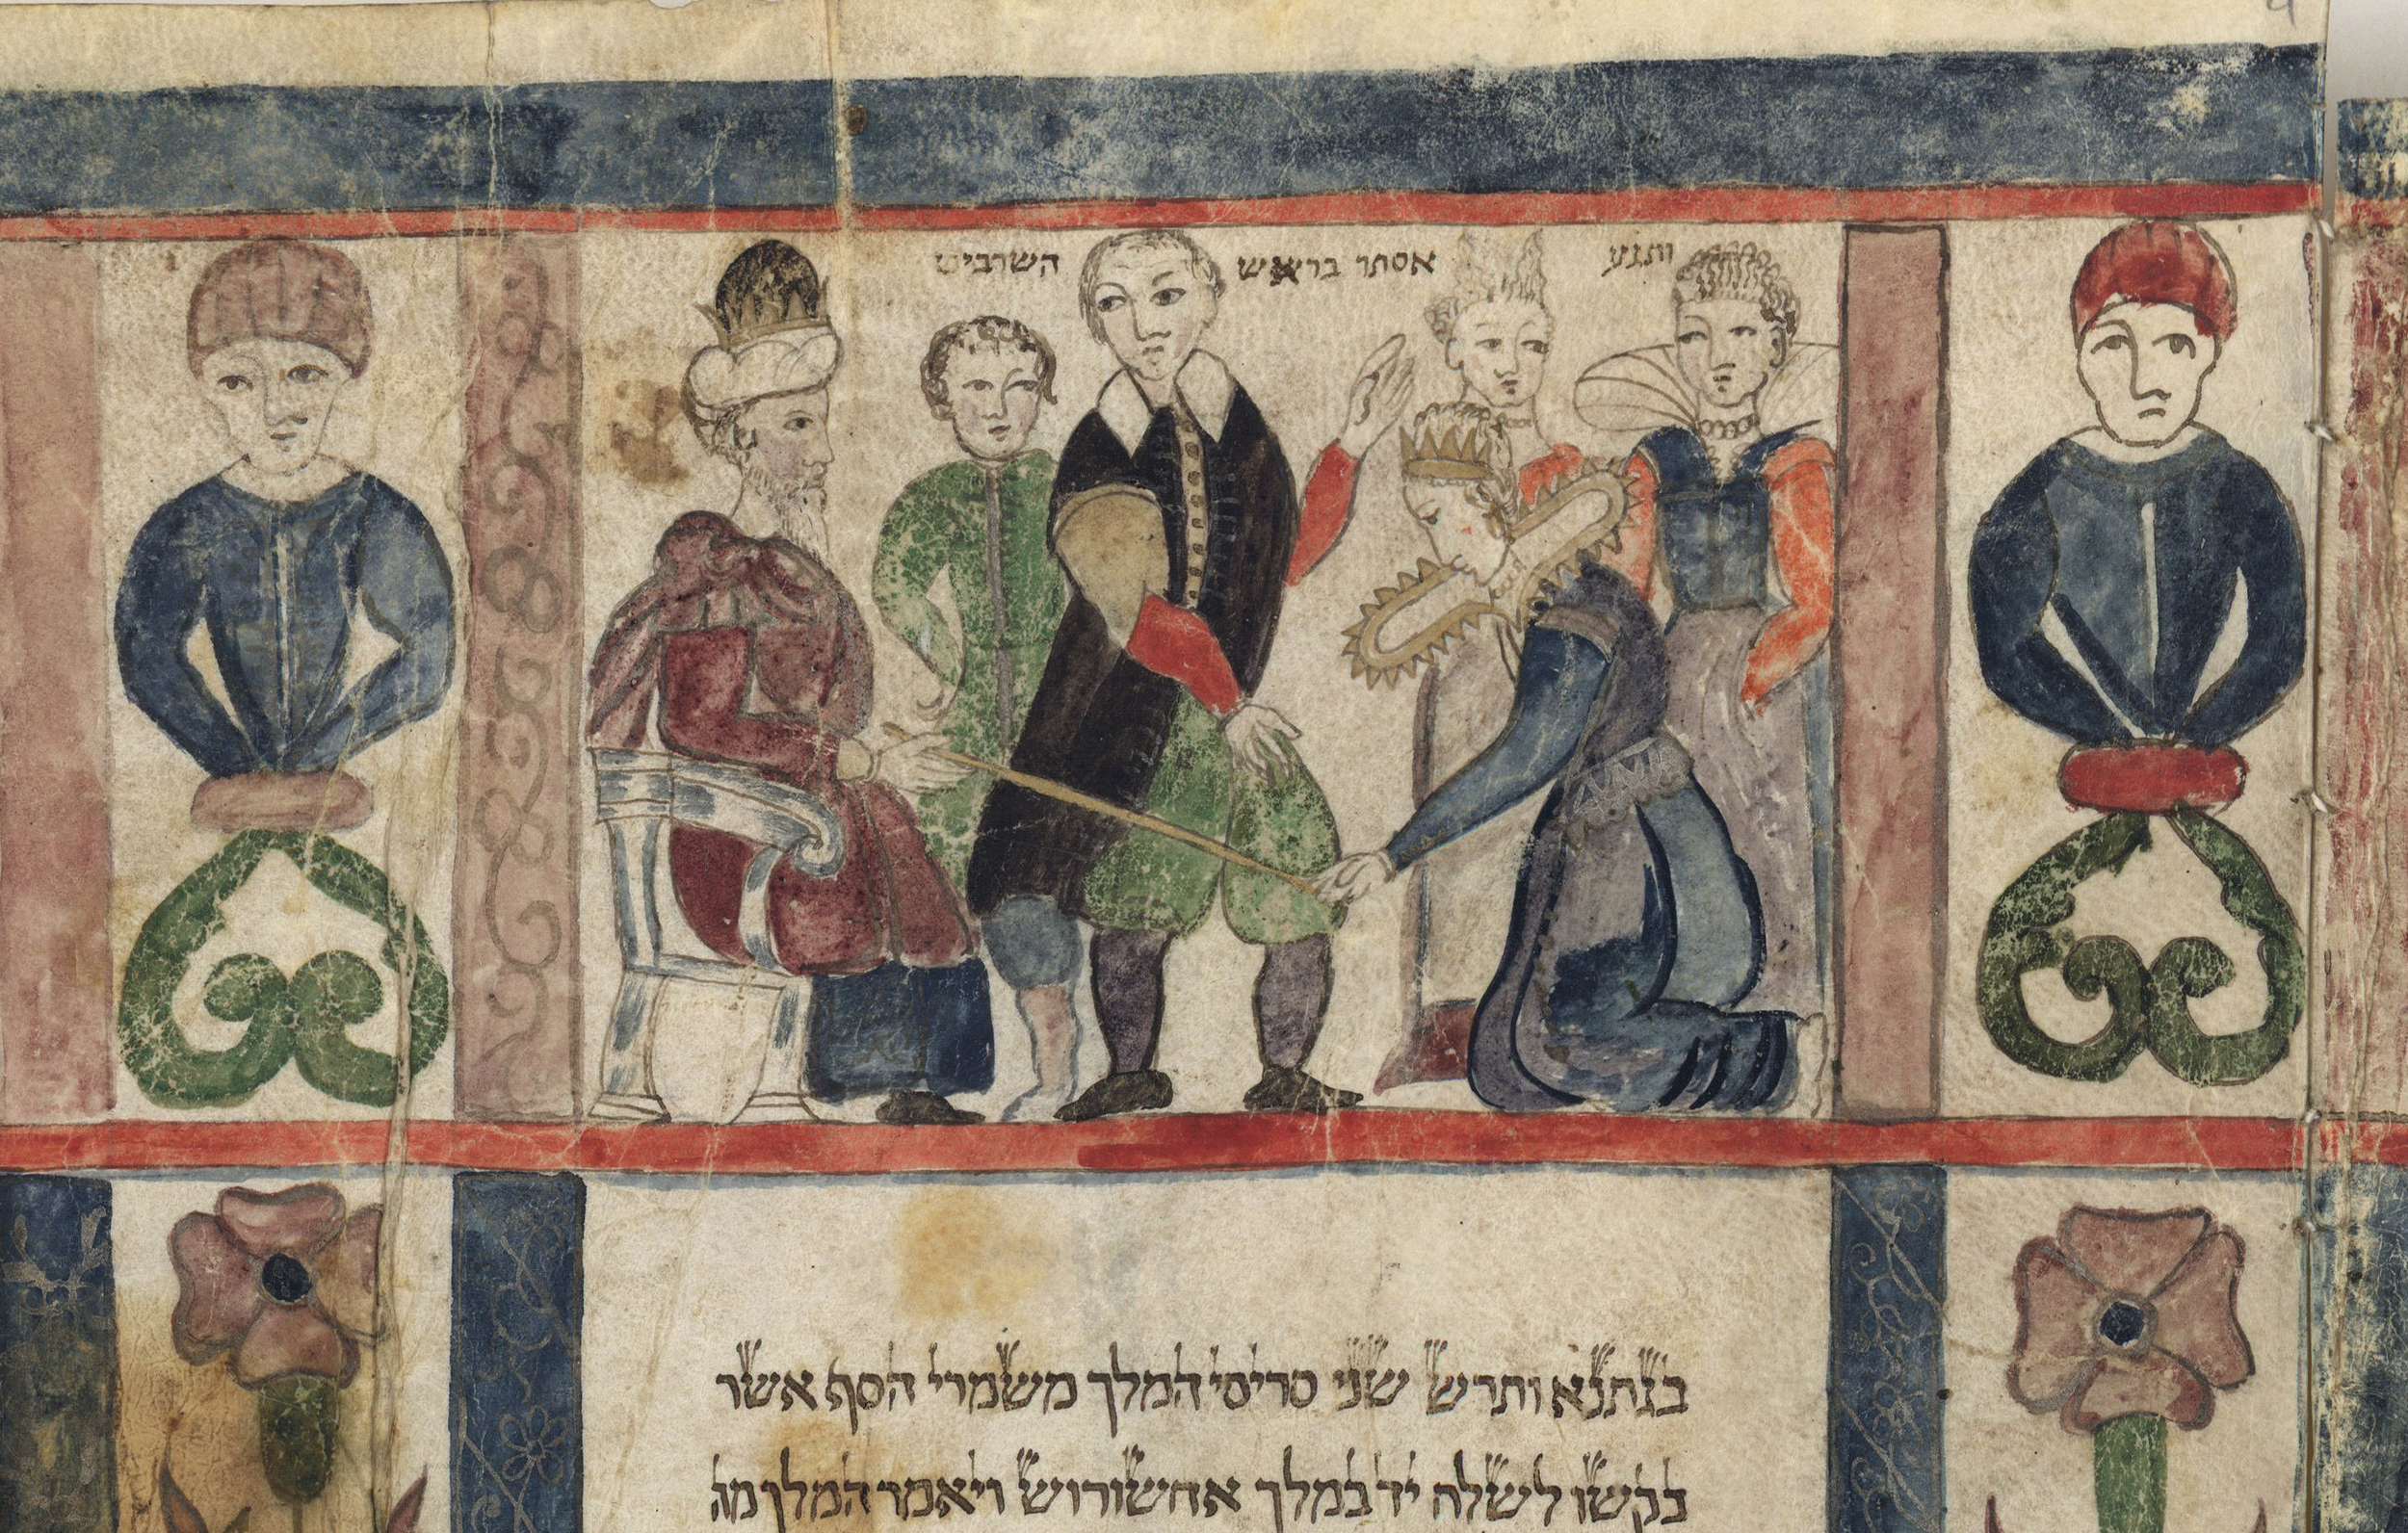 ותגע אסתר בראש השרביט
בגתנא ותרש שני סריסי המלך משמרי הסף אשר
בקשו לשלח יד במלך אחשורוש ויאמר המלך מה